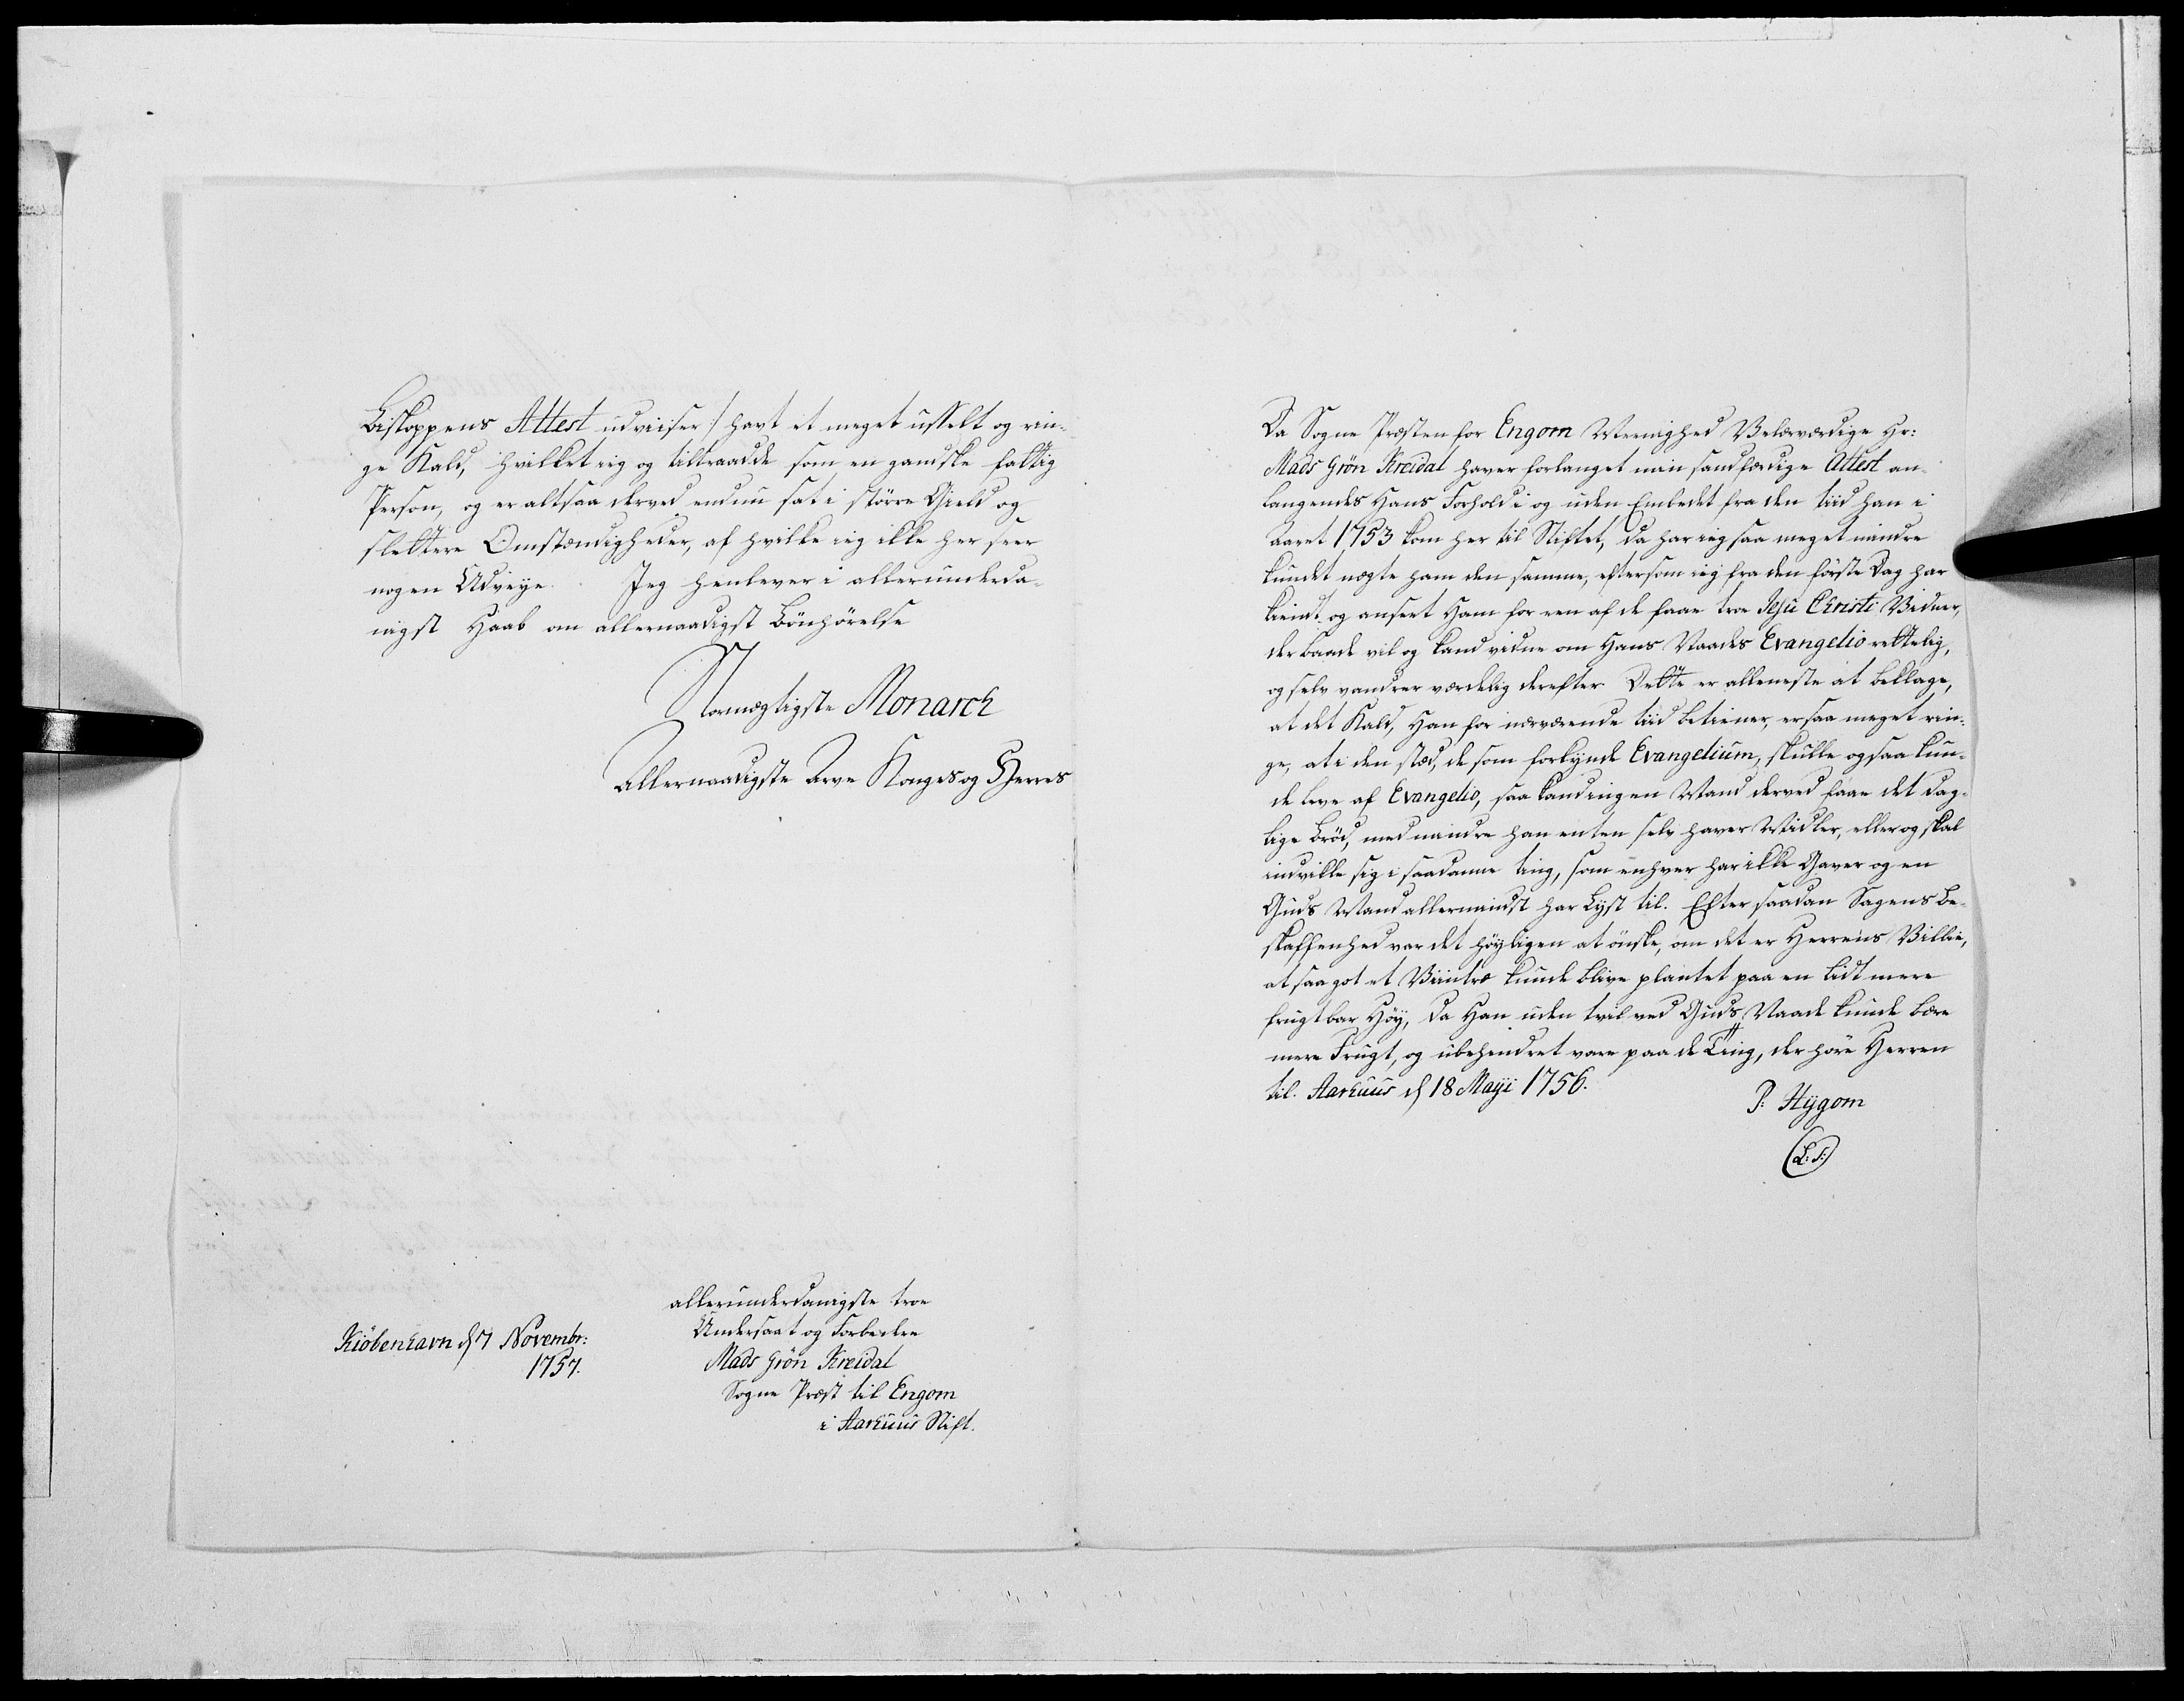 Biskoppens Attest udviiser :/ havt et meget usselt og rin-
ge Kald, hvilket ieg og tiltraadde som en gandske fattig
Person, og er altsaa derved endnu sat i större Gield og
slettere Omstændigheder, af hvilke ieg ikke her seer
nogen Udveye. Jeg henlever i allerunderda-
nigst Haab om allernaadigst Bönhörelse
Stormægtigste Monarch
Allernaadigste Arve Konges og Herres
allerunderdanigste troe
Undersaat og Forbedere
Mads Grön Kreidal
Sogne Præst til Engom
i Aarhuus Stift.
Kiöbenhavn d 7 Novembr:
1757.
Da Sogne Præsten for Engom Meenighed Velærværdige Hr:
Mads Grön Kreidal haver forlanget min sandfærdige Attest an-
langendes Hans Forhold i og uden Embedet fra den tiid han i
Aaret 1753 kom her til Stiftet, da har ieg saa meget mindre
kundet nægte ham den samme, eftersom ieg fra den förste Dag har
kiendt og anseet Ham for een af de faae troe Jesu Christi Vidner,
der baade vil og kand vidne om Hans Naades Evangelio rettelig,
og selv vandrer værdelig derefter. Dette er alleneste at beklage,
at det Kald, Han for nærværende tiid betiener, er saa meget rin-
ge, at i den stæd, de som forkynde Evangelium, skulle ogsaa kun-
de leve af Evangelio, saa kand ingen Mand derved faae det dag-
lige Bröd, med mindre han enten selv haver Midler, eller og skal
indvikle sig i saadanne ting, som enhver har ikke Gaver og en
Guds Mand allermindst har Lyst til. Efter saadan Sagens Be-
skaffenhed var det höyligen at önske, om det er Herrens Villie,
at saa got et Viintræ kunde blive plantet paa en lidt mere
frugtbar Höy, da Han uden tvil ved Guds Naade kunde bære
mere Frugt, og ubehindret være paa de Ting, der höre Herren
til. Aarhuus d 18 Maji 1756.
P. Hygom
(L.S.)